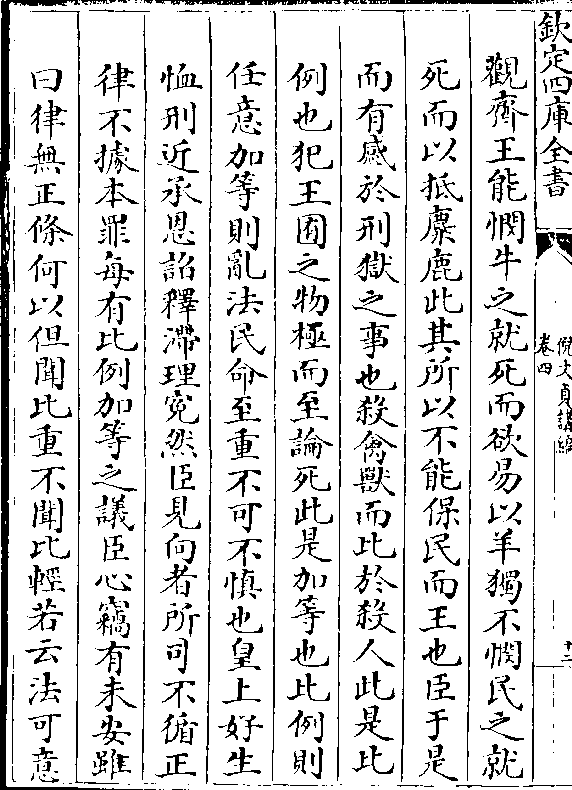 欽定四庫全書
倪文貞講編
卷四
十二
觀齊王能憫牛之就死而欲易以羊獨不憫民之就
死而以抵麋鹿此其所以不能保民而王也臣于是
而有感於刑獄之事也殺禽獸而比於殺人此是比
例也犯王囿之物極而至論死此是加等也比例則
任意加等則亂法民命至重不可不慎也皇上好生
恤刑近承恩詔釋滯理寃然臣見向者所司不循正
律不據本罪每有比例加等之議臣心竊有未安雖
曰律無正條何以但聞比重不聞比輕若云法可意